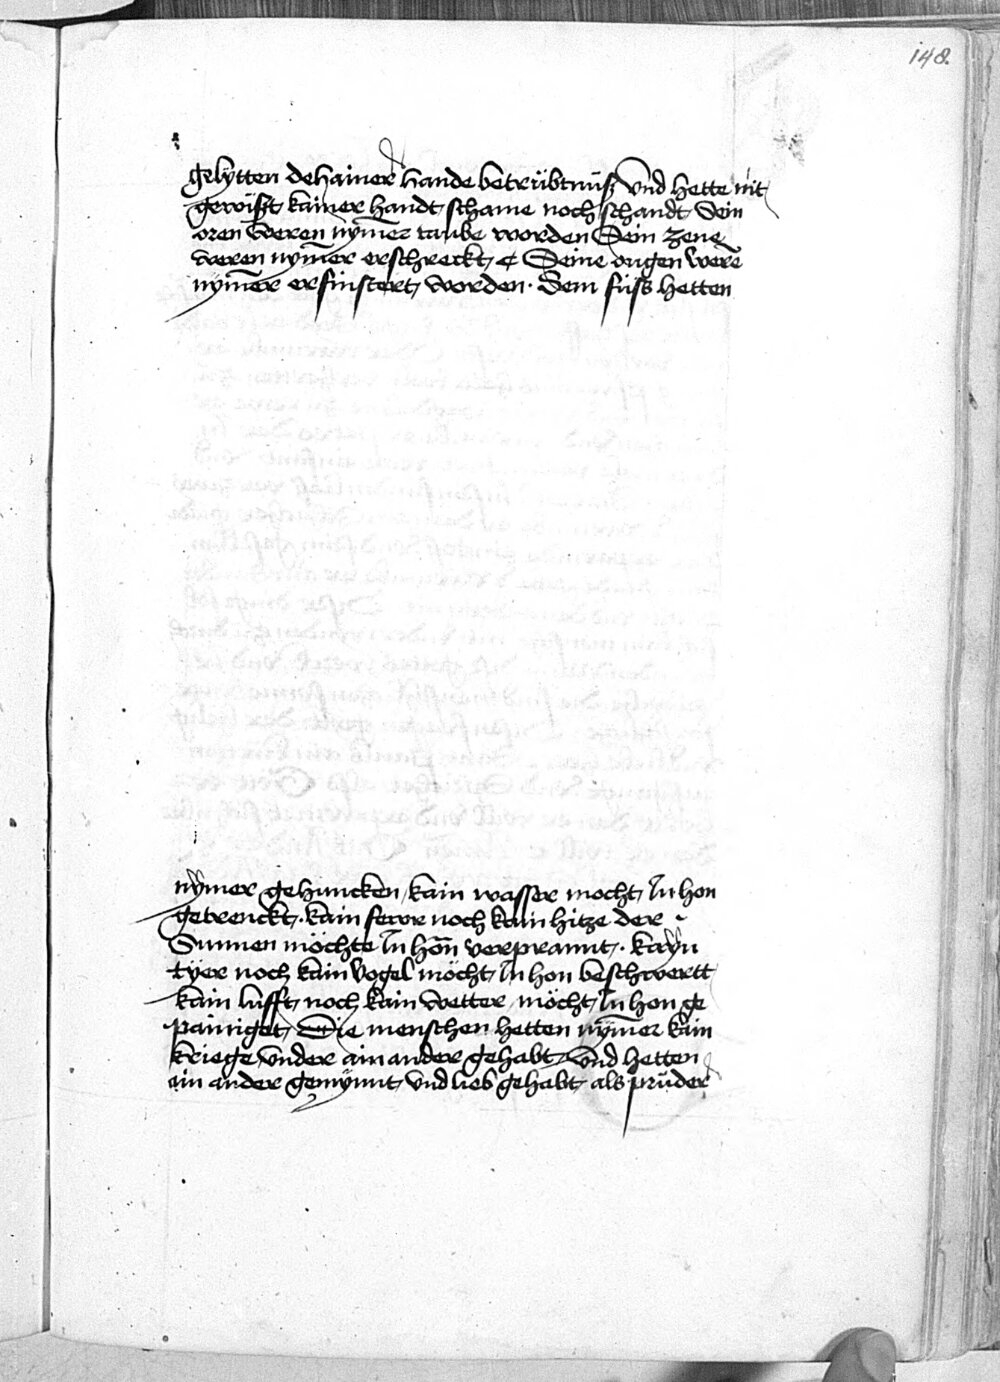 148.
gelytten dehainer hande betrübtnüß vnd hette nit
gewißt kainer handt schame noch schandt Sein
oren weren nymer taube worden Sein zene
weren nymer erschreckt Seine augen were
nymer erfinstert worden · Sein füss hetten
nymer gehuncken kain wasser mocht In hon
getrenckt · kain fewr noch kain hitze der
Sunnen möchte In hon verprannt · kayn
tyer noch kain vogel möcht In hon beschwertt
kain lufft noch kain wetter möcht In hon ge
painiget Die menschen hetten nymer kain
kriege vnder ain ander gehabt vnd hetten
ain ander gemynnt vnd lieb gehabt als prüder